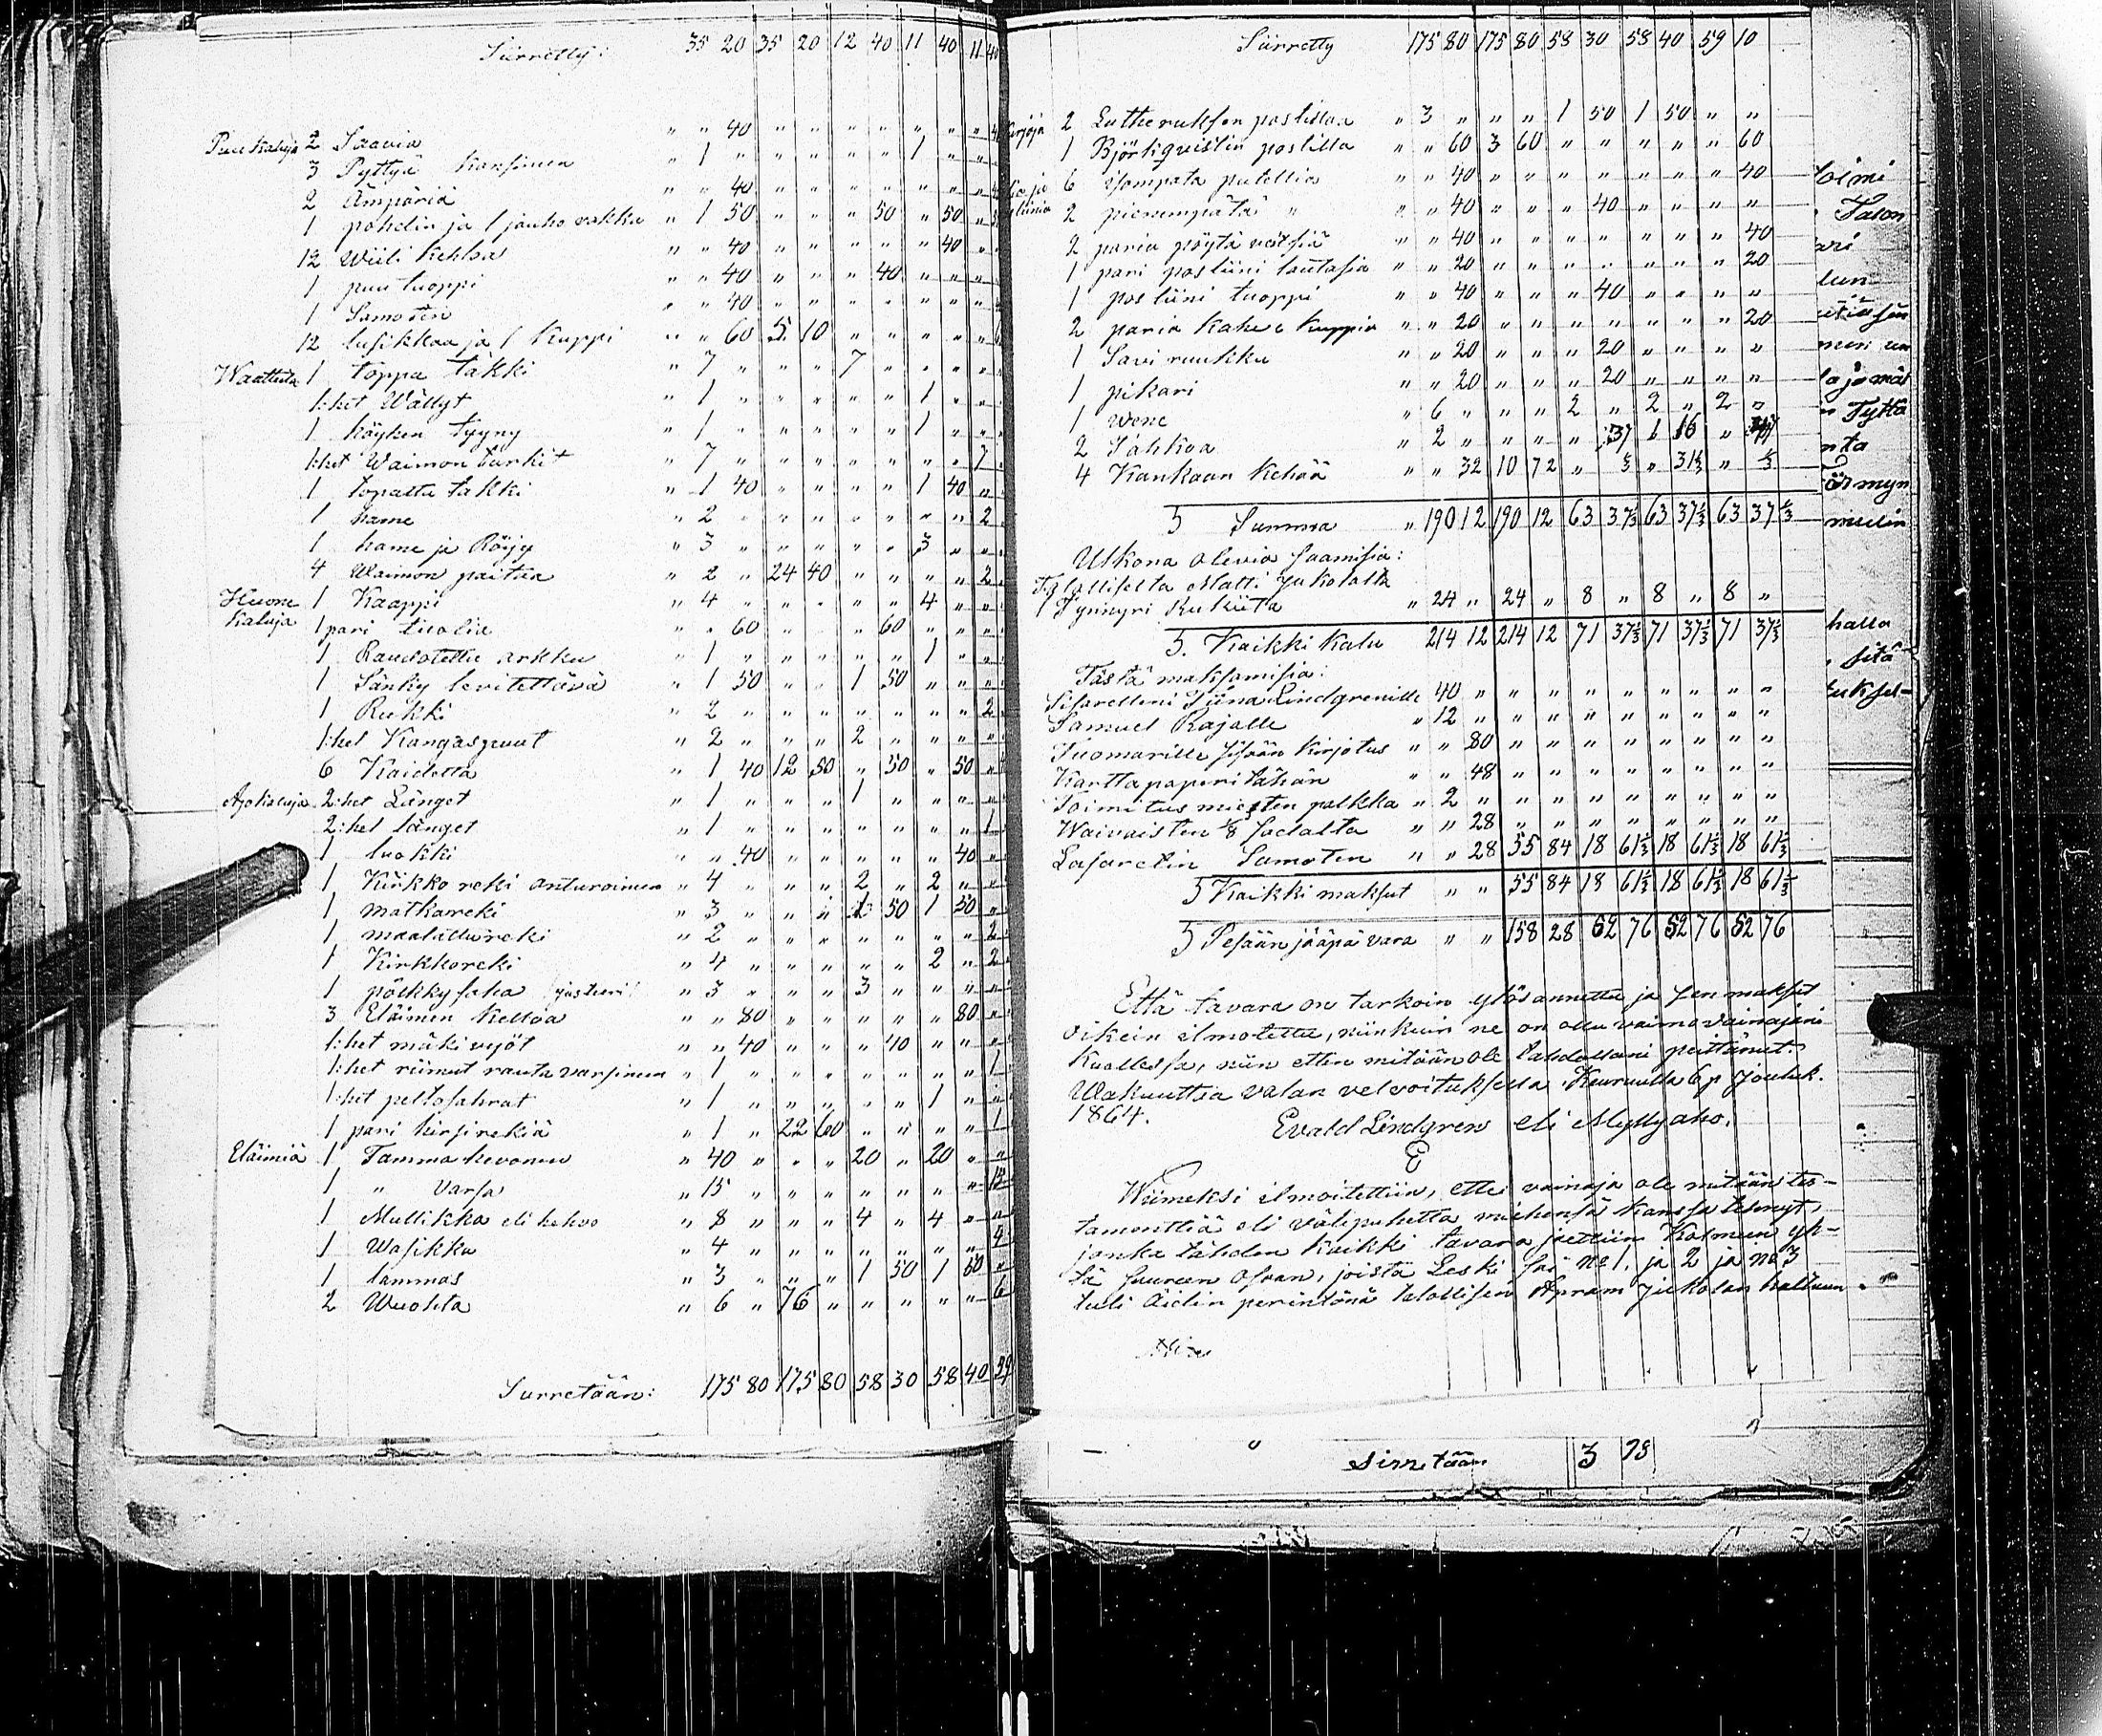 Siirretty: 35 20 35 20 12 40 11 40 11 40
Puukaluja 2 Saavia " " 40 " " " " " " "
3 Pyttyä kansinen " 1 " " " " " 1 " "
2 Ämpäriä " " 40 " " " " " "
1 pohdin ja 1 jauho vakka " 1 50 " " " 50 " 50 "
12 Wiili kehloa " " 40 " " " " " 40 "
1 puu tuoppi " " 40 " " " 40 " " "
1 Samoten " " 40 " " " " " " "
12 lusikkaa ja 1 Kuppi " " 60 5 10 " " " " "
Waatteita 1 toppa takki " 7 " " " 7 " " " "
1:het Wällyt " 1 " " " " " 1 " "
1 höyhen tyyny " 1 " " " " " 1 " "
1:het Waimon turkit " 7 " " " " " " " 7
1 topattu takki " 1 40 " " " " 1 40 "
1 hame " 2 " " " " " " " 2
1 hame ja Röijy " 3 " " " " " 3 " "
4 Waimon paitaa " 2 " 24 40 " " " " 2
Huone 1 Kaappi " 4 " " " " " 4 " "
kaluja 1 pari tuolia " " 60 " " " 60 " " "
1 Raudotettu arkku " 1 " " " " " 1 " "
1 Sänky levitettävä " 1 50 " " 1 50 " " "
1 Rukki " 2 " " " " " " " 2
1:het Kangaspuut " 2 " " " 2 " " " "
6 Kaidetta " 1 40 12 50 " 50 " 50 "
Ajokaluja 2:het Länget " 1 " " " 1 " " " "
2:het länget " 1 " " " " " " " 1
1 luokki " " 40 " " " " " 40 "
1 Kirkko reki anturoinen " 4 " " " 2 " 2 " "
1 matkareki " 3 " " " 1 50 1 50 "
1 maalattu reki " 2 " " " " " " " 2
1 Kirkkoreki " 4 " " " " " 2 " 2
1 pölkky saha (justeeri) " 3 " " " 3 " " " "
3 Eläimen kelloa " " 80 " " " " " 80 "
1:het mäkivyöt " " 40 " " " 40 " " "
1:het riimut rauta varsinen " 1 " " " " " " " 1
1:het peltosahrat " 1 " " " " " 1 " "
1 pari hirsirekiä " 1 " 22 60 " " " " 1
Eläimiä 1 Tamma hevonen " 40 " " " 20 " 20 " "
1 " Varsa " 15 " " " " " " " 15
1 Mullikka eli hehvo " 8 " " " 4 " 4 " "
1 Wasikka " 4 " " " " " " " 4
1 lammas " 3 " " " 1 50 1 50 "
2 Wuohta " 6 " 76 " " " " " 6
Siirretään: 175 80 175 80 58 30 58 40 59
Siirretty 175 80 175 80 58 30 58 40 59 10
Kirjoja 2 Lutheruksen postillaa " 3 " " " 1 50 1 50 " "
1 Björkqvistin postilla " " 60 3 60 " " " " " 60
6 isompata putellia " " 40 " " " " " " 40
2 pienempätä " " " 40 " " " 40 " " " "
2 paria pöytä veitsiä " " 40 " " " " " " 40
1 pari posliini lautasia " " 20 " " " " " " 20
1 posliini tuoppi " " 40 " " " 40 " " " "
2 paria kahve kuppia " " 20 " " " " " " 20
1 Savi ruukku " " 20 " " " 20 " " " "
1 pikari " " 20 " " " 20 " " " "
1 wene " 6 " " " 2 " 2 " 2 "
2 Tahkoa " 2 " " " " 37 1 16 "
4 Kankaan kehää " " 32 10 72 " ⅓ " 31⅓ " ⅓
S Summa " 190 12 190 12 63 37⅓ 63 37⅓ 63 37⅓
Ulkona olevia saamisia:
Talolliselta Matti Jukolalta
1 Tynnyri Rukiita " 24 " 24 " 8 " 8 " 8 "
S. Kaikki kalu 214 12 214 12 71 37⅓ 71 37⅓ 71 37⅓
Tästä maksamisia:
Sisarelleni Tiina Lindgrenille 40 " " " " " " " " "
Samuel Rajalle " 12 " " " " " " " " "
Tuomarille sisään kirjotus " " 80 " " " " " " " "
Karttapaperi tähän " " 48 " " " " " " " "
Toimitus miesten palkka " 2 " " " " " " " " "
Waivaisten ⅛ sadalta " " 28 " " " " " " " "
Lasaretin Samoten " " 28 55 84 18 61⅓ 18 61⅓ 18 61⅓
S Kaikki maksut " " 55 84 18 61⅓ 18 61⅓ 18 61⅓
S Pesään jääpä vara " " 158 28 52 76 52 76 52 76
Että tavara on tarkoin ylös annettu ja sen maksut
oikein ilmotettu, niinkuin ne on ollu vaimovainajani
kuollessa, niin etten mitään ole tahdollani peittänut.
Wakuuttaa valan velvoituksella. Keuruulla 6 p. Jouluk.
1864. Evald Lindgren eli Myllyaho.
Wiimeksi ilmoitettiin, ettei vainaja ole mitään tes-
tamenttiä eli välipuhetta miehensä kanssa tehnyt,
jonka tähden kaikki tavara jaettiin kolmeen yh-
tä suureen osaan, joista Leski sai No 1, ja 2 ja No 3
tuli äidin perintönä talollisen Apram Jukolan haltuun
Siirretään 3 78
Toimi
Talon
lun
Tytta
nta
halla
sitä